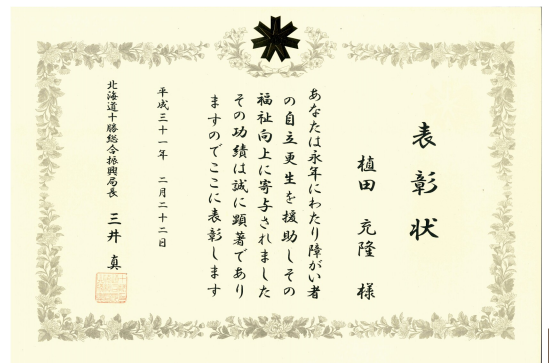 表彰状
植田 充隆 様
あなたは永年にわたり障がい者
の自立更生を援助しその
福祉向上に寄与されました
その功績は誠に顕著であり
ますのでここに表彰します
平成三十一年 二月二十二日
北海道十勝総合振興局長 三井 真